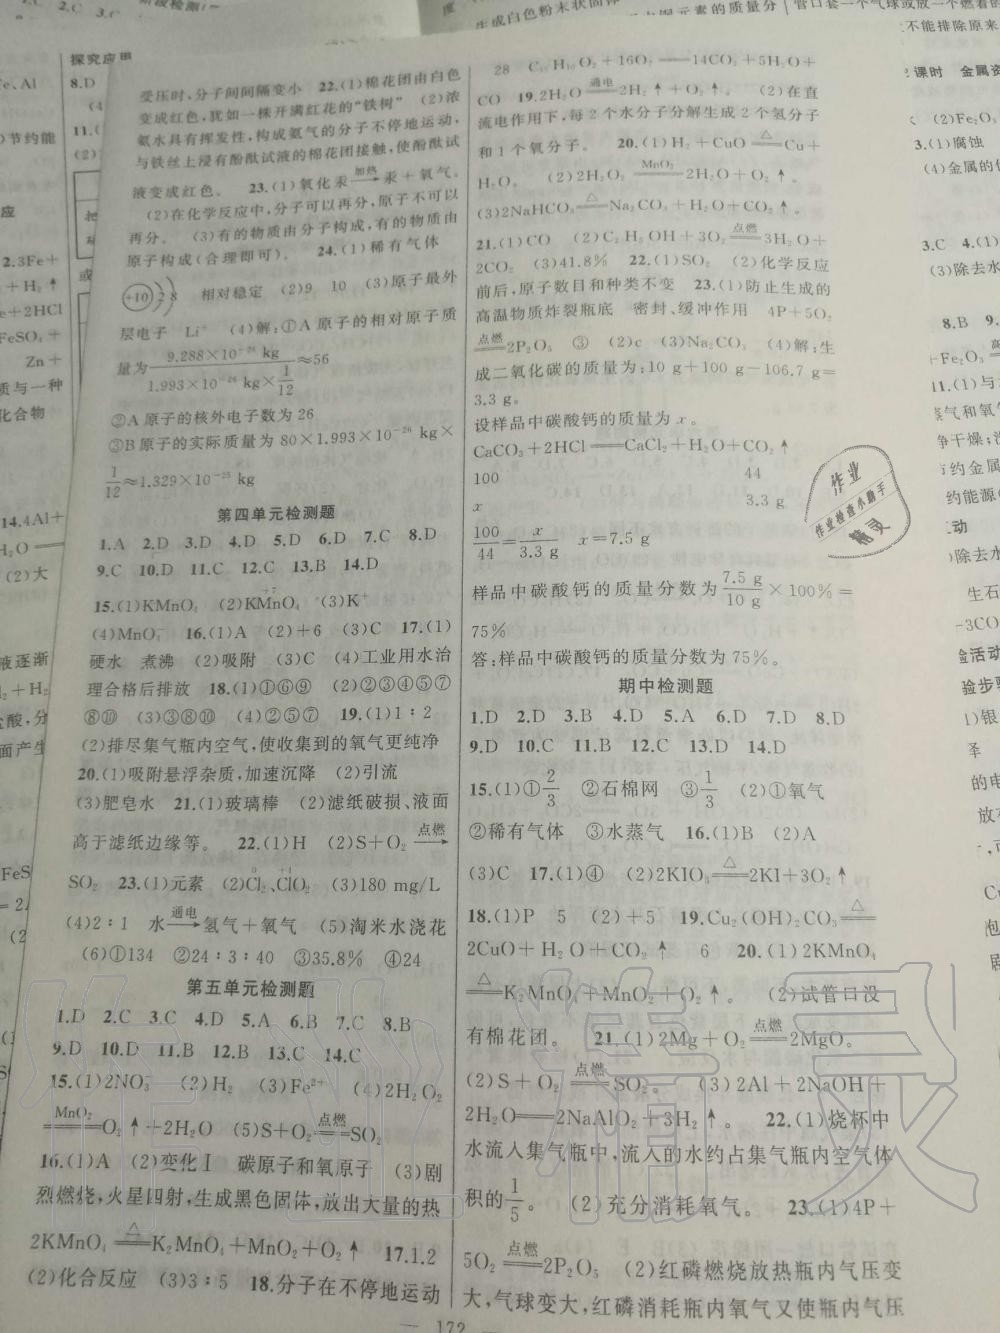 受压时,分子间间隔变小 22.(1)棉花团由白色
变成红色,犹如一株开满红花的“铁树” (2)浓
氨水具有挥发性,构成氨气的分子不停地运动,
与铁丝上浸有酚酞试液的棉花团接触,使酚酞试
液变成红色。 23.(1)氧化汞 加热→ 汞+氧气。
(2)在化学反应中,分子可以再分,原子不可以
再分。 (3)有的物质由分子构成,有的物质由
原子构成(合理即可)。 24.(1)稀有气体
+10 2 8 相对稳定 (2)9 10 (3)原子最外
层电子 Li⁺ (4)解:①A原子的相对原子质
量为 9.288×10⁻²⁶ kg / (1.993×10⁻²⁶ kg×1/12) ≈56
②A原子的核外电子数为26
③B原子的实际质量为80×1.993×10⁻²⁶ kg×
1/12≈1.329×10⁻²⁵ kg
第四单元检测题
1.A 2.D 3.D 4.D 5.D 6.D 7.C 8.D
9.C 10.D 11.C 12.C 13.B 14.D
15.(1)KMnO₄ (2)KMnO₄ +7 (3)K⁺
(4)MnO₄⁻ 16.(1)A (2)+6 (3)C 17.(1)
硬水 煮沸 (2)吸附 (3)C (4)工业用水治
理合格后排放 18.(1)①⑥⑨ (2)②③④⑤⑦
⑧⑩ (3)③⑧⑩ (4)②⑤⑦ 19.(1)1∶2
(2)排尽集气瓶内空气,使收集到的氧气更纯净
20.(1)吸附悬浮杂质,加速沉降 (2)引流
(3)肥皂水 21.(1)玻璃棒 (2)滤纸破损、液面
高于滤纸边缘等。 22.(1)H (2)S+O₂ 点燃→
SO₂ 23.(1)元素 (2)Cl₂、ClO₂ 0 +4 (3)180 mg/L
(4)2∶1 水 通电→ 氢气+氧气 (5)淘米水浇花
(6)①134 ②24∶3∶40 ③35.8% ④24
第五单元检测题
1.D 2.C 3.C 4.D 5.A 6.B 7.C 8.B
9.D 10.D 11.B 12.B 13.C 14.C
15.(1)2NO₃⁻ (2)H₂ (3)Fe²⁺ (4)2H₂O₂
MnO₂ ══ O₂↑+2H₂O (5)S+O₂ 点燃══ SO₂
16.(1)A (2)变化Ⅰ 碳原子和氧原子 (3)剧
烈燃烧,火星四射,生成黑色固体,放出大量的热
2KMnO₄ △══ K₂MnO₄+MnO₂+O₂↑ 17.1.2
(2)化合反应 (3)3∶5 18.分子在不停地运动
28 C₁₀H₁₀O₂+16O₂══14CO₂+5H₂O+
CO 19.2H₂O 通电══ 2H₂↑+O₂↑。 (2)在直
流电作用下,每2个水分子分解生成2个氢分子
和1个氧分子。 20.(1)H₂+CuO △══ Cu+
H₂O。 (2)2H₂O₂ MnO₂══ 2H₂O+O₂↑。
(3)2NaHCO₃ △══ Na₂CO₃+H₂O+CO₂↑。
21.(1)CO (2)C₂H₅OH+3O₂ 点燃══ 3H₂O+
2CO₂ (3)41.8% 22.(1)SO₂ (2)化学反应
前后,原子数目和种类不变 23.(1)防止生成的
高温物质炸裂瓶底 密封、缓冲作用 4P+5O₂
点燃══ 2P₂O₅ ③ (2)c (3)Na₂CO₃ (4)解:生
成二氧化碳的质量为:10 g+100 g−106.7 g=
3.3 g。
设样品中碳酸钙的质量为 x。
CaCO₃+2HCl══CaCl₂+H₂O+CO₂↑
100 44
x 3.3 g
100/44=x/3.3 g x=7.5 g
样品中碳酸钙的质量分数为 7.5 g/10 g×100%=
75%
答:样品中碳酸钙的质量分数为75%。
期中检测题
1.D 2.D 3.B 4.D 5.A 6.D 7.D 8.D
9.D 10.C 11.B 12.C 13.D 14.D
15.(1)①2/3 ②石棉网 ③1/3 (2)①氧气
②稀有气体 ③水蒸气 16.(1)B (2)A
(3)C 17.(1)④ (2)2KIO₃ △══ 2KI+3O₂↑
18.(1)P 5 (2)+5 19.Cu₂(OH)₂CO₃ △══
2CuO+H₂O+CO₂↑ 6 20.(1)2KMnO₄
△══ K₂MnO₄+MnO₂+O₂↑。 (2)试管口没
有棉花团。 21.(1)2Mg+O₂ 点燃══ 2MgO。
(2)S+O₂ 点燃══ SO₂。 (3)2Al+2NaOH+
2H₂O══2NaAlO₂+3H₂↑ 22.(1)烧杯中
水流入集气瓶中,流入的水约占集气瓶内空气体
积的1/5。 (2)充分消耗氧气。 23.(1)4P+
5O₂ 点燃══ 2P₂O₅ (2)红磷燃烧放热瓶内气压变
大,气球变大,红磷消耗瓶内氧气又使瓶内气压
— 172 —
作业
作业检查小助手
精灵
作业精灵
探究应用
8.D
节约能
2.3Fe+
Zn+
质与一种
化合物
14.4Al+
(2)大
液逐渐
面产生
生成白色粉末状固体
元素的质量分
管口套一个气球或放一个燃着的
不能排除原来
课时 金属资
(2)Fe₂O₃
3.(1)腐蚀
(4)金属的
3.C 4.(1)
(3)除去水
8.B
+Fe₂O₃
11.(1)与
气和氧气
净干燥;
约金属
约能源
除去水
生石
验活动
验步骤
1)银
的电
放在